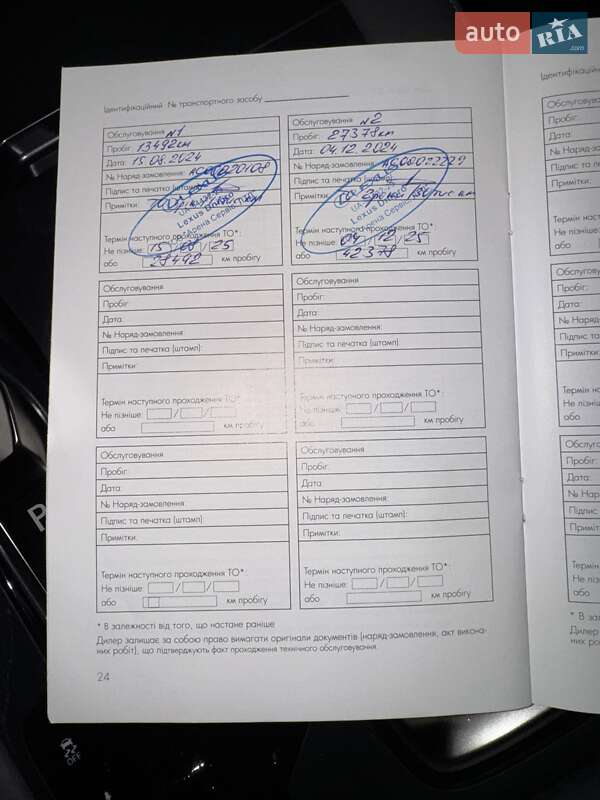 auto RIA.com
Ідентифікаційний № транспортного засобу
Обслуговування №1
Пробіг: 13492км
Дата: 15.08.2024
№ Наряд-замовлення:
Підпис та печатка (штамп)
Примітки:
Lexus
Термін наступного проходження ТО*:
Не пізніше: 15/08/25
або 28492 км пробігу
Обслуговування №2
Пробіг: 27378км
Дата: 04.12.2024
№ Наряд-замовлення:
Підпис та печатка (штамп)
Примітки:
Lexus
Термін наступного проходження ТО*:
Не пізніше: 04/12/25
або 42378 км пробігу
Обслуговування
Пробіг:
Дата:
№ Наряд-замовлення:
Підпис та печатка (штамп):
Примітки:
Термін наступного проходження ТО*:
Не пізніше: / /
або км пробігу
Обслуговування
Пробіг:
Дата:
№ Наряд-замовлення:
Підпис та печатка (штамп):
Примітки:
Термін наступного проходження ТО*:
Не пізніше: / /
або км пробігу
Обслуговування
Пробіг:
Дата:
№ Наряд-замовлення:
Підпис та печатка (штамп):
Примітки:
Термін наступного проходження ТО*:
Не пізніше: / /
або км пробігу
Обслуговування
Пробіг:
Дата:
№ Наряд-замовлення:
Підпис та печатка (штамп):
Примітки:
Термін наступного проходження ТО*:
Не пізніше: / /
або км пробігу
* В залежності від того, що настане раніше
Дилер залишає за собою право вимагати оригінали документів (наряд-замовлення, акт викона-
них робіт), що підтверджують факт проходження технічного обслуговування.
24
P
OFF